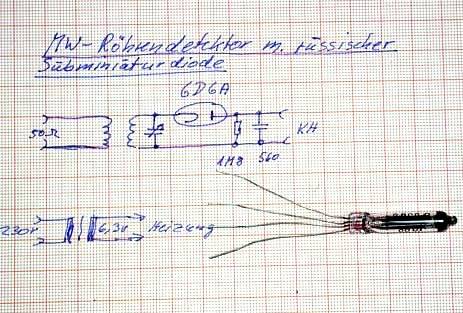 MW-Röhrendetektor m. russischer
Subminiaturdiode
6D6A
50Ω
KH
1M8 560
230V 6,3V Heizung